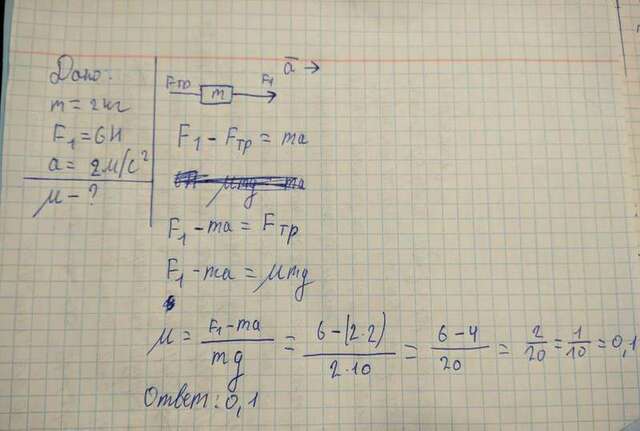 Дано:
m = 2кг
F₁ = 6Н
a = 2м/с²
μ - ?
Fтр m F₁ a →
F₁ - Fтр = ma
F₁ - ma = Fтр
F₁ - ma = μmg
μ = F₁-ma / mg = 6-(2·2) / 2·10 = 6-4 / 20 = 2/20 = 1/10 = 0,1
Ответ: 0,1